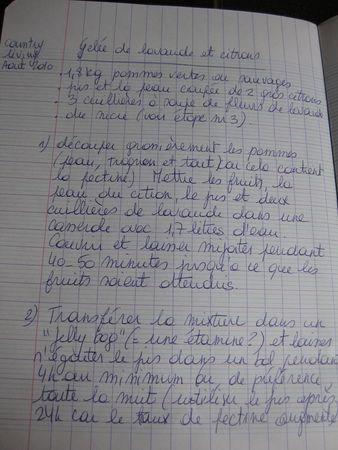 Country
living
Août 2010
Gelée de lavande et citrons
. 1,8 kg pommes vertes ou sauvages
. jus et la peau coupée de 2 gros citrons
. 3 cuillières à soupe de fleurs de lavande
. du sucre (voir étape n°3)
1) découper grossièrement les pommes
(peau, trognon et tout car cela contient
la pectine). Mettre les fruits, la
peau du citron, le jus et deux
cuillières de lavande dans une
casserole avec 1,7 litres d'eau.
Couvrir et laisser mijoter pendant
40-50 minutes jusqu'à ce que les
fruits soient attendris.
2) Transférer la mixture dans un
"jelly bag" (= une étamine?) et laisser
s'égoutter le jus dans un bol pendant
4h au minimum ou de préférence
toute la nuit (utiliser le jus après
24h car le taux de pectine augmente